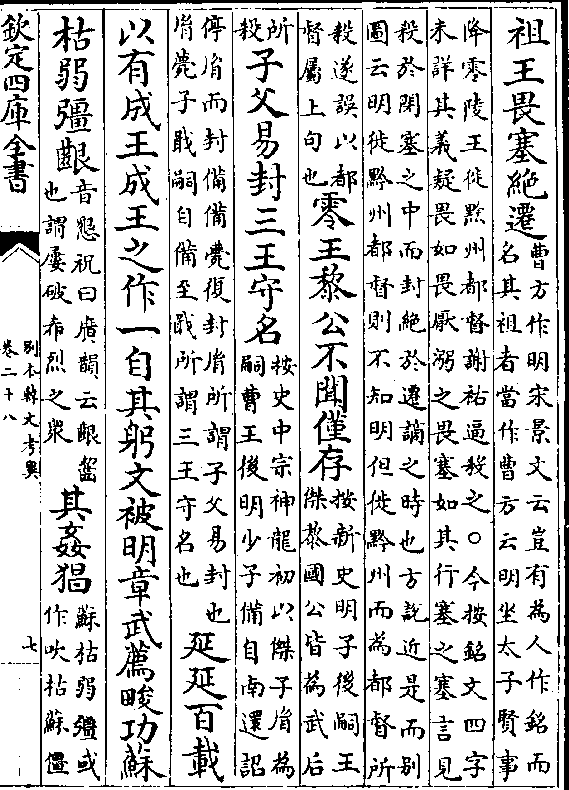 祖王畏塞絶遷曹方作明宋景文云豈有為人作銘而
名其祖者當作曹方云明坐太子賢事
降零陵王徙黔州都督謝祐逼殺之○今按銘文四字
未詳其義疑畏如畏厭溺之畏塞如其行塞之塞言見
殺於閉塞之中而封絶於遷謫之時也方説近是而别
圖云明徙黔州都督則不知明但徙黔州而為都督所
殺遂誤以都
督屬上句也
零王黎公不聞僅存按新史明子後嗣王
傑黎國公皆為武后
所
殺
子父易封三王守名按史中宗神龍初以傑子胤為
嗣曹王後明少子備自南還詔
停胤而封備備薨復封胤所謂子父易封也
胤薨子戢嗣自備至戢所謂三王守名也
延延百載
以有成王成王之作一自其躬文被明章武薦畯功蘇
枯弱彊齦音懇祝曰廣韻云齦齧
也謂屢破希烈之衆
其姦猖蘇枯弱彊或
作吹枯蘇僵
欽定四庫全書
别本韓文考異
卷二十八
七